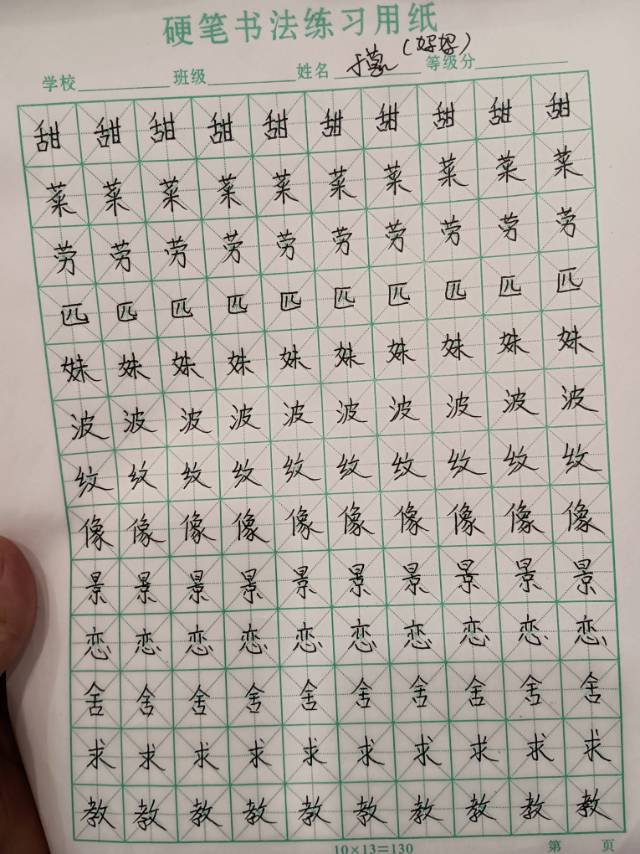 硬笔书法练习用纸
学校 班级 姓名 (好好) 等级分
甜甜甜甜甜甜甜甜甜甜
菜菜菜菜菜菜菜菜菜菜
劳劳劳劳劳劳劳劳劳劳
匹匹匹匹匹匹匹匹匹匹
妹妹妹妹妹妹妹妹妹妹
波波波波波波波波波波
纹纹纹纹纹纹纹纹纹纹
像像像像像像像像像像
景景景景景景景景景景
恋恋恋恋恋恋恋恋恋恋
舍舍舍舍舍舍舍舍舍舍
求求求求求求求求求求
教教教教教教教教教教
10×13=130 第 页